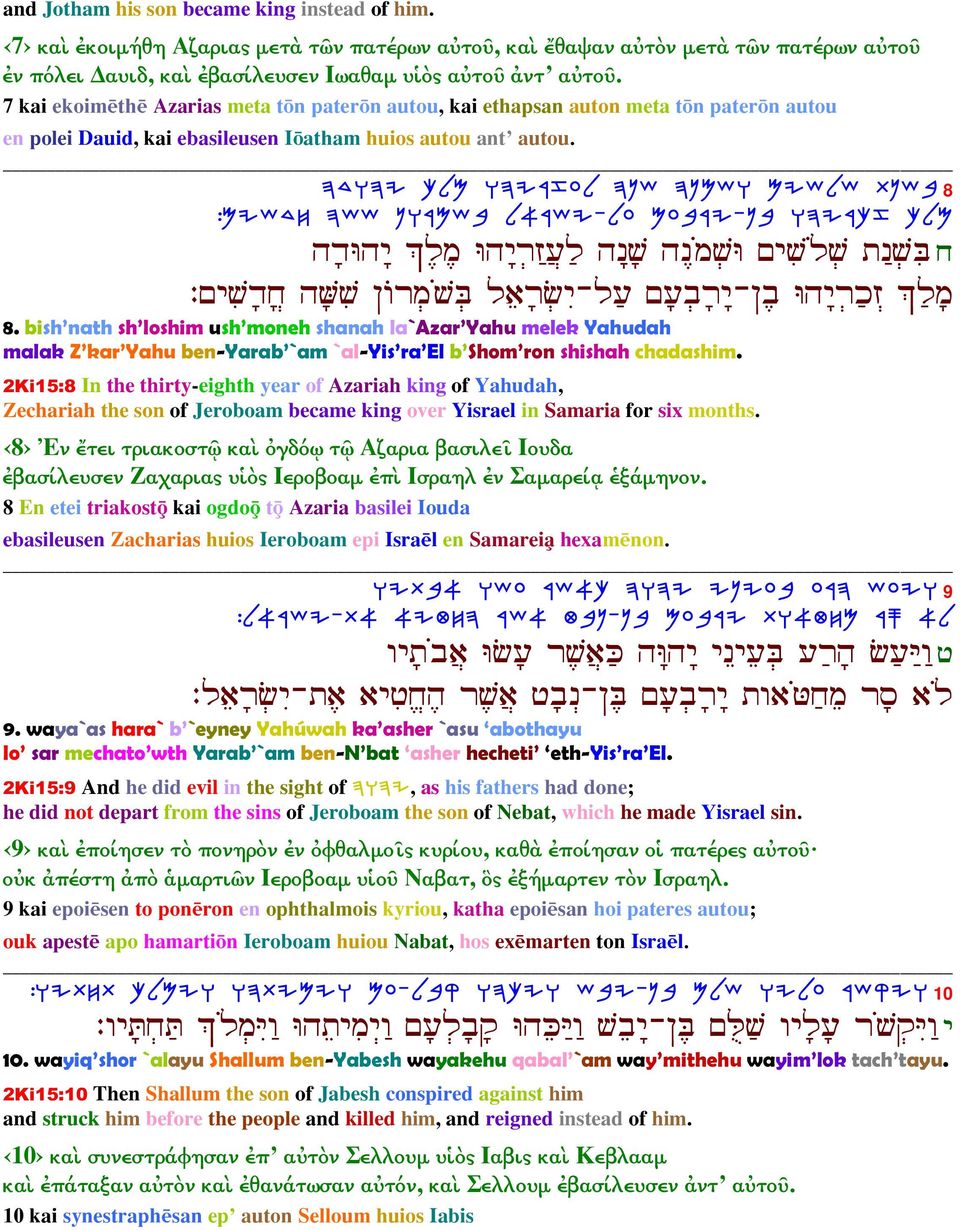 and Jotham his son became king instead of him.
‹7› καὶ ἐκοιμήθη Αζαριας μετὰ τῶν πατέρων αὐτοῦ, καὶ ἔθαψαν αὐτὸν μετὰ τῶν πατέρων αὐτοῦ
ἐν πόλει Δαυιδ, καὶ ἐβασίλευσεν Ιωαθαμ υἱὸς αὐτοῦ ἀντ’ αὐτοῦ.
7 kai ekoimēthē Azarias meta tōn paterōn autou, kai ethapsan auton meta tōn paterōn autou
en polei Dauid, kai ebasileusen Iōatham huios autou ant’ autou.
8 𐤁𐤔𐤍𐤕 𐤔𐤋𐤔𐤉𐤌 𐤅𐤔𐤌𐤍𐤄 𐤔𐤍𐤄 𐤋𐤏𐤆𐤓𐤉𐤄𐤅 𐤌𐤋𐤊 𐤉𐤄𐤅𐤃𐤄
𐤌𐤋𐤊 𐤆𐤊𐤓𐤉𐤄𐤅 𐤁𐤍-𐤉𐤓𐤁𐤏𐤌 𐤏𐤋-𐤉𐤔𐤓𐤀𐤋 𐤁𐤔𐤌𐤓𐤅𐤍 𐤔𐤔𐤄 𐤇𐤃𐤔𐤉𐤌:
ח בִּשְׁנַת שְׁלֹשִׁים וּשְׁמֹנֶה שָׁנָה לַעֲזַרְיָהוּ מֶלֶךְ יָהוּדָה
מָלַךְ זְכַרְיָהוּ בֶן־יָרָבְעָם עַל־יִשְׂרָאֵל בְּשֹׁמְרוֹן שִׁשָּׁה חֳדָשִׁים׃
8. bish’nath sh’loshim ush’moneh shanah la`Azar’Yahu melek Yahudah
malak Z’kar’Yahu ben-Yarab’`am `al-Yis’ra’El b’Shom’ron shishah chadashim.
2Ki15:8 In the thirty-eighth year of Azariah king of Yahudah,
Zechariah the son of Jeroboam became king over Yisrael in Samaria for six months.
‹8› Ἐν ἔτει τριακοστῷ καὶ ὀγδόῳ τῷ Αζαρια βασιλεῖ Ιουδα
ἐβασίλευσεν Ζαχαριας υἱὸς Ιεροβοαμ ἐπὶ Ισραηλ ἐν Σαμαρείᾳ ἑξάμηνον.
8 En etei triakostǭ kai ogdoǭ tǭ Azaria basilei Iouda
ebasileusen Zacharias huios Ieroboam epi Israēl en Samareią hexamēnon.
9 𐤅𐤉𐤏𐤔 𐤄𐤓𐤏 𐤁𐤏𐤉𐤍𐤉 𐤉𐤄𐤅𐤄 𐤊𐤀𐤔𐤓 𐤏𐤔𐤅 𐤀𐤁𐤕𐤉𐤅
𐤋𐤀 𐤎𐤓 𐤌𐤇𐤈𐤀𐤅𐤕 𐤉𐤓𐤁𐤏𐤌 𐤁𐤍-𐤍𐤁𐤈 𐤀𐤔𐤓 𐤄𐤇𐤈𐤉𐤀 𐤀𐤕-𐤉𐤔𐤓𐤀𐤋:
ט וַיַּעַשׂ הָרַע בְּעֵינֵי יָהוָּה כַּאֲשֶׁר עָשׂוּ אֲבֹתָיו
לֹא סָר מֵחַטֹּאות יָרָבְעָם בֶּן־נְבָט אֲשֶׁר הֶחֱטִיא אֶת־יִשְׂרָאֵל׃
9. waya`as hara` b’`eyney Yahúwah ka’asher `asu ‘abothayu
lo’ sar mechato’wth Yarab’`am ben-N’bat ‘asher hecheti’ ‘eth-Yis’ra’El.
2Ki15:9 And he did evil in the sight of 𐤉𐤄𐤅𐤄, as his fathers had done;
he did not depart from the sins of Jeroboam the son of Nebat, which he made Yisrael sin.
‹9› καὶ ἐποίησεν τὸ πονηρὸν ἐν ὀφθαλμοῖς κυρίου, καθὰ ἐποίησαν οἱ πατέρες αὐτοῦ·
οὐκ ἀπέστη ἀπὸ ἁμαρτιῶν Ιεροβοαμ υἱοῦ Ναβατ, ὃς ἐξήμαρτεν τὸν Ισραηλ.
9 kai epoiēsen to ponēron en ophthalmois kyriou, katha epoiēsan hoi pateres autou;
ouk apestē apo hamartiōn Ieroboam huiou Nabat, hos exēmarten ton Israēl.
10 𐤅𐤉𐤒𐤔𐤓 𐤏𐤋𐤉𐤅 𐤔𐤋𐤌 𐤁𐤍-𐤉𐤁𐤔 𐤅𐤉𐤊𐤄𐤅 𐤒𐤁𐤋-𐤏𐤌 𐤅𐤉𐤌𐤉𐤕𐤄𐤅 𐤅𐤉𐤌𐤋𐤊 𐤕𐤇𐤕𐤉𐤅:
י וַיִּקְשֹׁר עָלָיו שַׁלֻּם בֶּן־יָבֵשׁ וַיַּכֵּהוּ קָבָלְעָם וַיְמִיתֵהוּ וַיִּמְלֹךְ תַּחְתָּיו׃
10. wayiq’shor `alayu Shallum ben-Yabesh wayakehu qabal’`am way’mithehu wayim’lok tach’tayu.
2Ki15:10 Then Shallum the son of Jabesh conspired against him
and struck him before the people and killed him, and reigned instead of him.
‹10› καὶ συνεστράφησαν ἐπ’ αὐτὸν Σελλουμ υἱὸς Ιαβις καὶ Κεβλααμ
καὶ ἐπάταξαν αὐτὸν καὶ ἐθανάτωσαν αὐτόν, καὶ Σελλουμ ἐβασίλευσεν ἀντ’ αὐτοῦ.
10 kai synestraphēsan ep’ auton Selloum huios Iabis